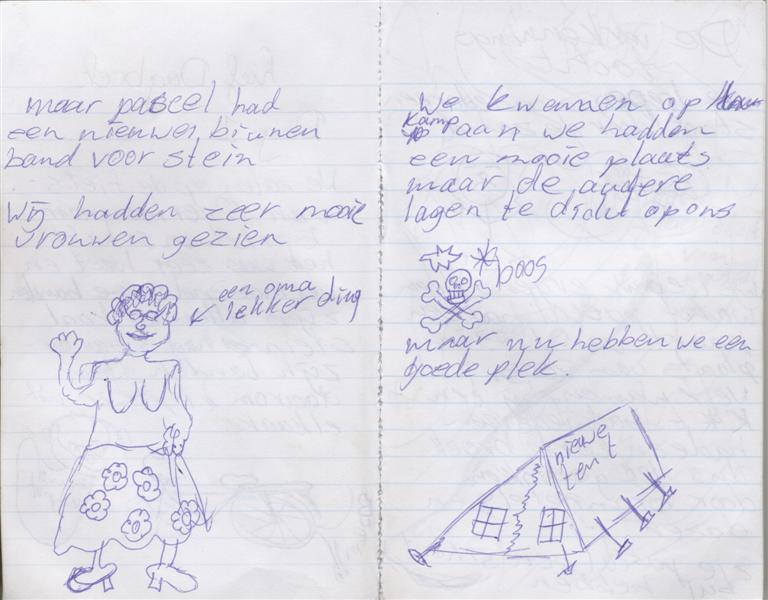 maar pascel had
een nieuwe binnen
band voor stein
Wij hadden zeer mooie
vrouwen gezien
een oma
lekker ding
We kwammen op
kamp aan we hadden
een mooie plaats
maar de andere
lagen te dicht op ons
boos
maar nu hebben we een
goede plek.
nieuwe
tent